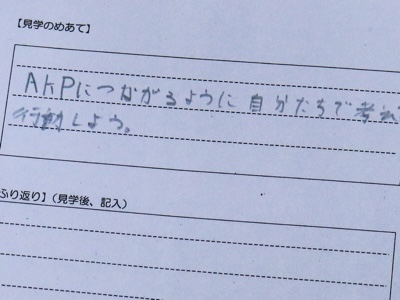 【見学のめあて】
AトPにつながるように自分たちで考え
行動しよう。
ふり返り】(見学後、記入)